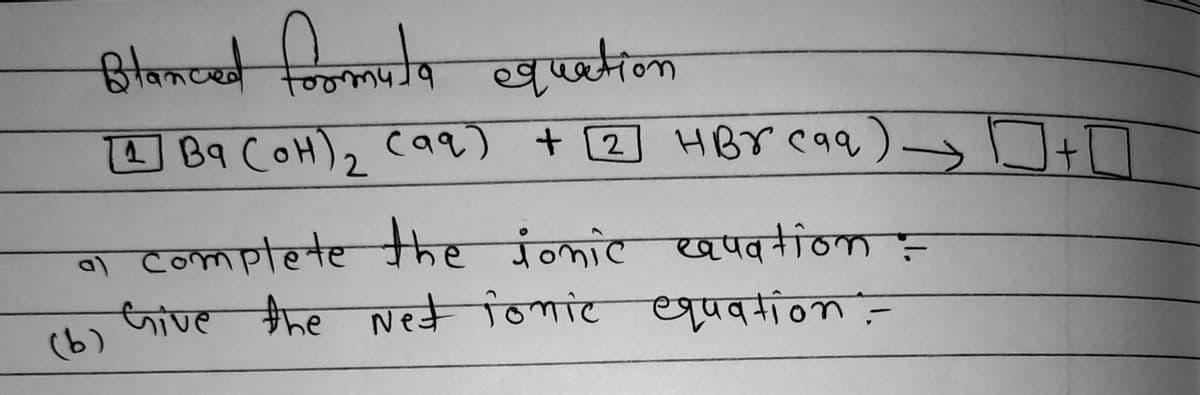 Blanced formula equation
[1] Ba(OH)₂ (aq) + [2] HBr (aq) → □ + □
a) complete the ionic equation :-
(b) Give the Net ionic equation :-